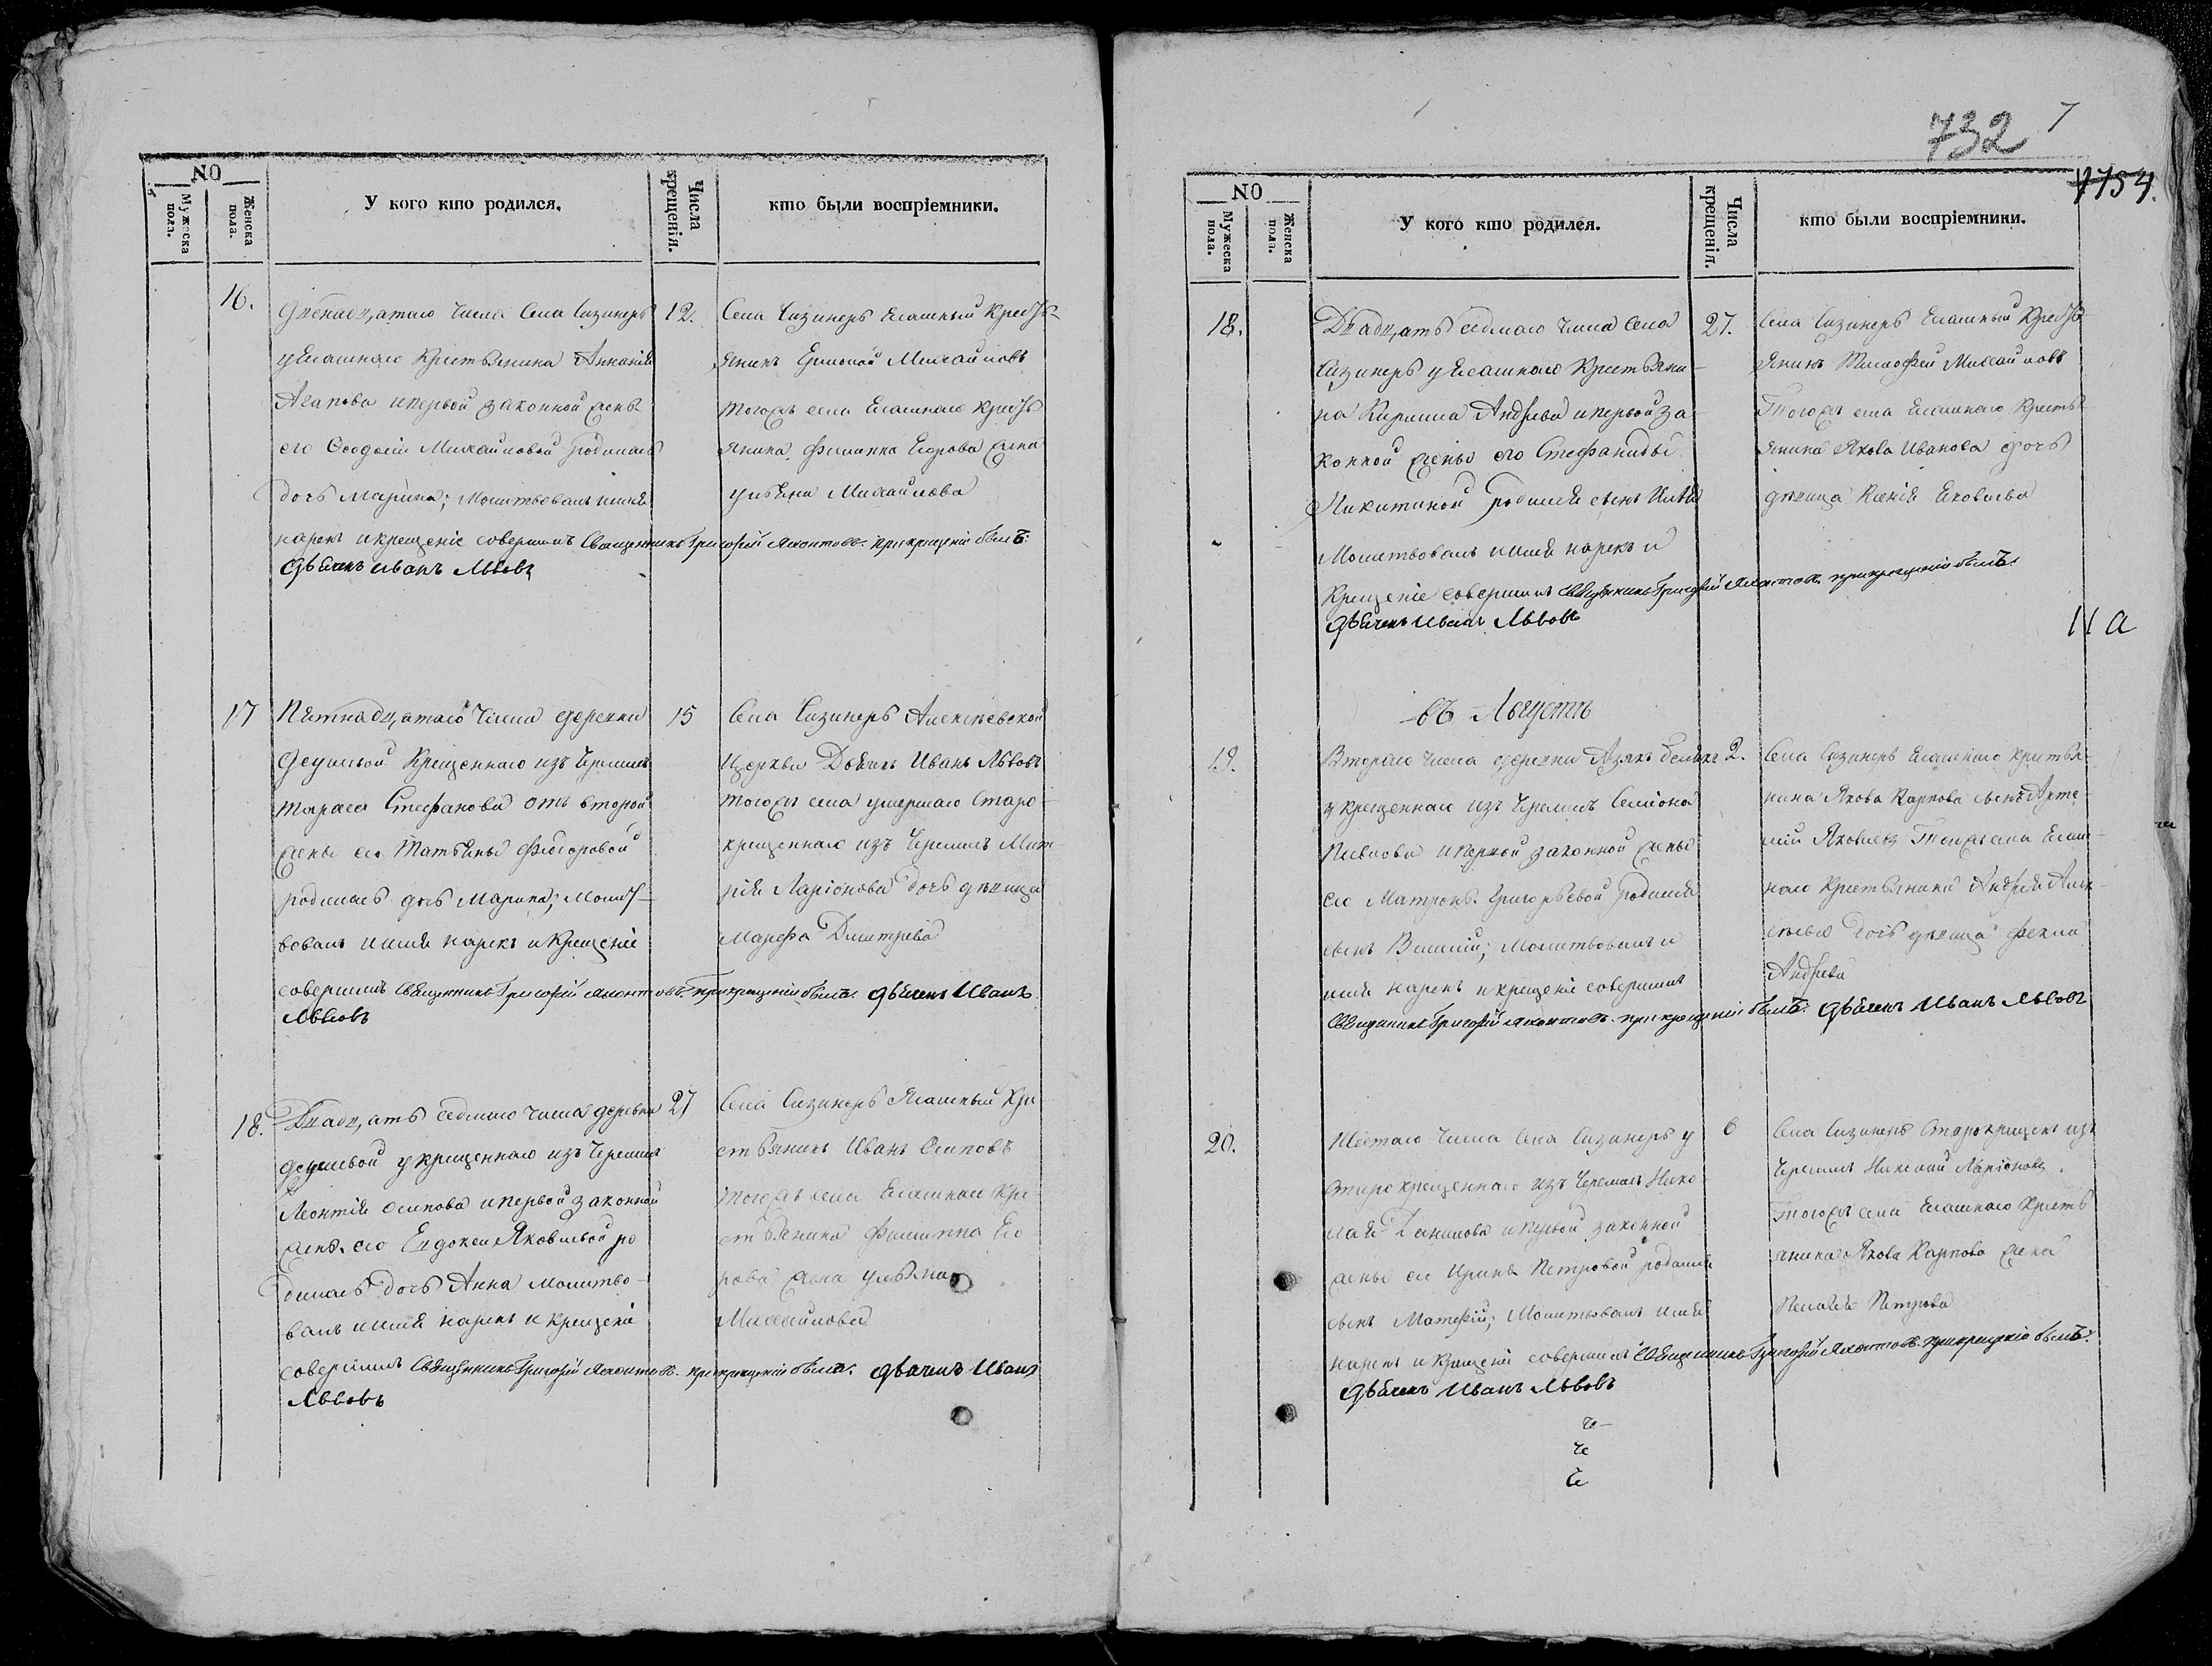 NO
Мужеска пола.
Женска пола.
У кого кто родился.
Числа крещенія.
кто были воспріемники.
16.
Двенадцатаго числа Села Сизинеръ
уЯсашнаго Крестьянина Ананія
Агапова ипервой законной жены
его Ѳеодосіи Михайловой родилась
дочь Марина; Молитвовалъ имя
нарекъ икрещеніе совершилъ Священникъ Григорій прикрещеніи былъ:
Дьяченъ Иванъ Львовъ
12.
Села Сизинеръ Ясашный Кресть-
янинъ Ермолай Михайловъ
тогожъ села Ясашнаго Кресть
янина Филиппа Егорова жена
Ульяна Михайлова
17
Пятнадцатаго числа деревни
Крещеннаго изъ Черемисъ
Тараса Стефанова отъ второй
жены его Татьяны Федоровой
родилась дочь Марина; Молит-
вовалъ имя нарекъ икрещеніе
совершилъ Священникъ Григорій прикрещеніи былъ: Дьяченъ Иванъ
Львовъ
15
Села Сизинеръ Алексѣевской
Церкви Дьячекъ Иванъ Львовъ
тогожъ села умершаго Старо-
крещеннаго изъ Черемисъ Мит-
рія Ларіонова дочь девица
Марфа Дмитріева
18.
Двадцать седьмаго числа деревни
укрещеннаго изъ Черемисъ
Леонтія Осипова ипервой законной
жены его Евдокеи Яковлевой ро
дилась дочь Анна Молитво-
валъ имя нарекъ икрещеніе
совершилъ Священникъ Григорій прикрещеніи былъ: Дьяченъ Иванъ
Львовъ
27
Села Сизинеръ Ясашный Кре-
стьянинъ Иванъ Осиповъ
тогожъ села Ясашнаго Кре-
стьянина Филиппа Его
рова жена Ульяна
Михайлова
732
7
1754.
NO
Мужеска пола.
Женска пола.
У кого кто родился.
Числа крещенія.
кто были воспріемники.
18.
Двадцать седмаго числа Села
Сизинеръ уЯсашнаго Крестьяни-
на Кирилла Андреева ипервой за-
конной жены его Стефаниды
Никитиной родился сынъ Илья
Молитвовалъ имя нарекъ и
Крещеніе совершилъ Священникъ Григорій прикрещеніи былъ:
Дьяченъ Иванъ Львовъ
27.
Села Сизинеръ Ясашный Кресть-
янинъ Тимофей Михайловъ
Тогожъ села Ясашнаго Кресть-
янина Якова Иванова дочь
девица Ксенія Яковлева
11 а
въ Августѣ
19.
Втораго числа деревни
укрещеннаго изъ Черемисъ Семіона
ипервой законной жены
его Матроны Григорьевой родился
сынъ Василій; Молитвовалъ и
имя нарекъ икрещеніе совершилъ
Священникъ Григорій при крещеніи былъ: Дьяченъ Иванъ Львовъ
2.
Села Сизинеръ Ясашнаго крестья-
нина Якова Карпова сынъ Арте-
мій Яковлевъ Тогожъ села Ясаш-
наго Крестьянина Андрея Алек-
сеева дочь девица Фекла
Андреева
20.
Шестаго числа Села Сизинеръ у
Старокрещеннаго изъ Черемисъ Нико-
лая Данилова ипервой законной
жены его Ирины Петровой родился
сынъ Матфій; Молитвовалъ имя
нарекъ икрещеніе совершилъ Священникъ Григорій прикрещеніи былъ:
Дьяченъ Иванъ Львовъ
6
Села Сизинеръ Старокрещенъ изъ
Черемисъ Николай Ларіоновъ.
Тогожъ села Ясашнаго Кресть
янина Якова Карпова жена
Пелагея Петрова